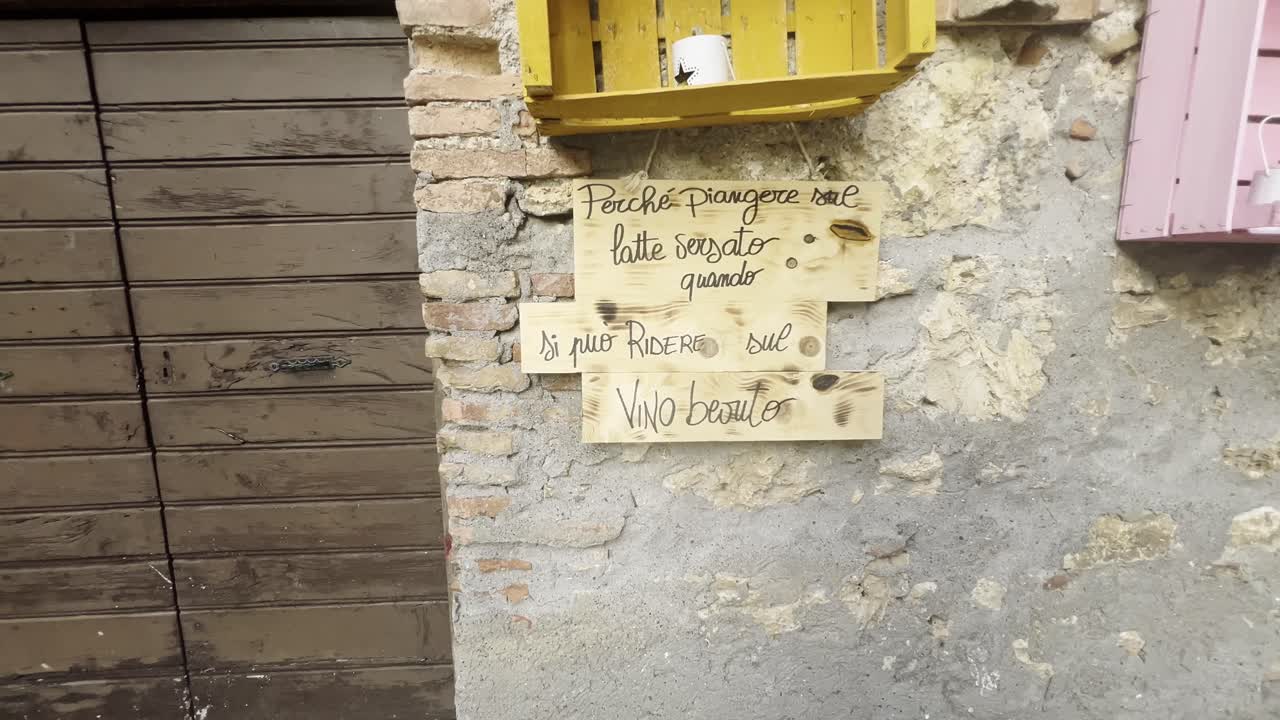 Perché piangere sul
latte versato
quando
si può RIDERE sul
VINO bevuto